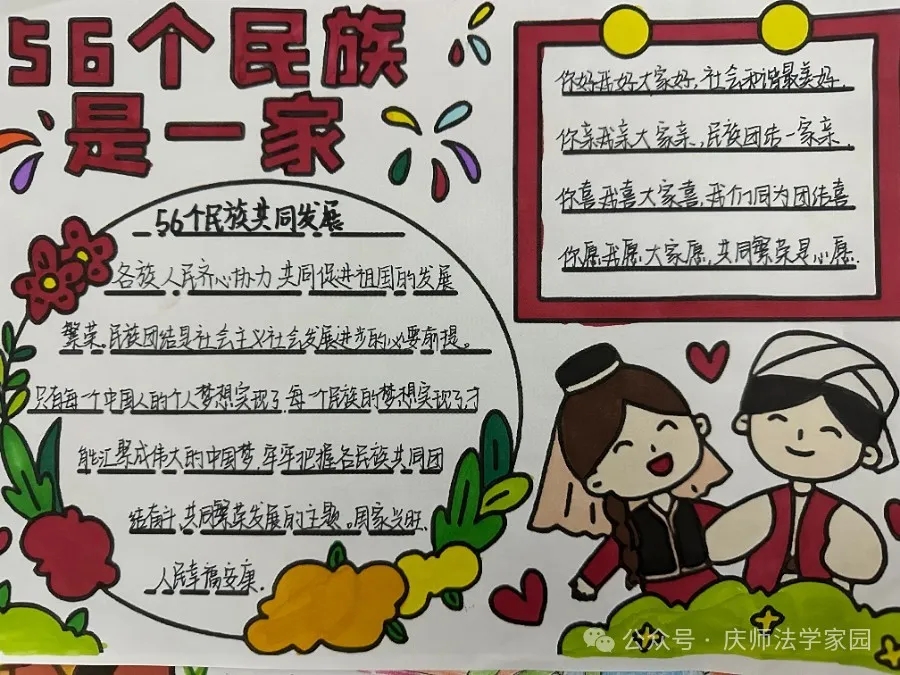 56个民族
是一家
你好我好大家好，社会和谐最美好.
你亲我亲大家亲，民族团结一家亲.
你喜我喜大家喜，我们同为团结喜
你愿我愿大家愿，共同繁荣是心愿.
56个民族共同发展
各族人民齐心协力共同促进祖国的发展
繁荣.民族团结是社会主义社会发展进步的必要前提。
只有每一个中国人的个人梦想实现了，每一个民族的梦想实现了，才
能汇聚成伟大的中国梦，牢牢把握各民族共同团
结奋斗，共同繁荣发展的主题。国家兴旺，
人民幸福安康.
公众号·庆师法学家园